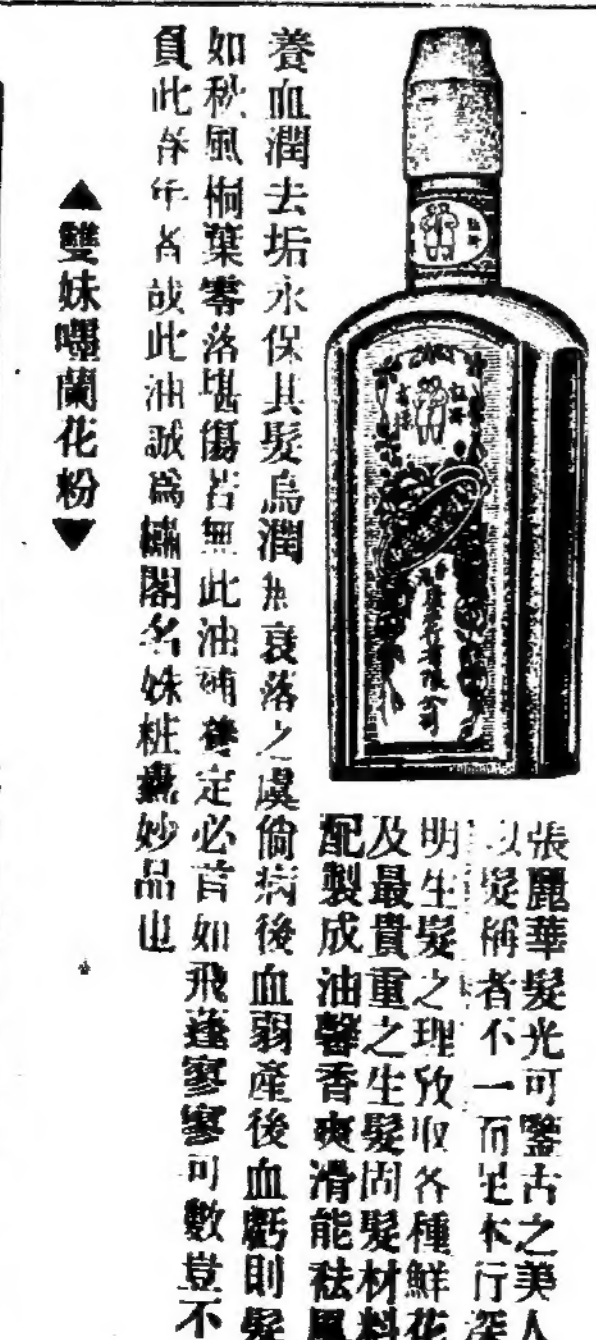 張麗華髮光可鑒古之美人
以髮稱者不一而足本行深
明生髮之理攷取各種鮮花
及最貴重之生髮固髮材料
配製成油馨香爽滑能袪風
養血潤去垢永保其髮烏潤無衰落之虞倘病後血弱產後血虧則髮
如秋風桐葉零落堪傷若無此油補養定必首如飛蓬寥寥可數豈不
負此年者哉此油誠爲閣名姝粧妙品也
▲雙妹嚜蘭花粉▼
廣行有限公司